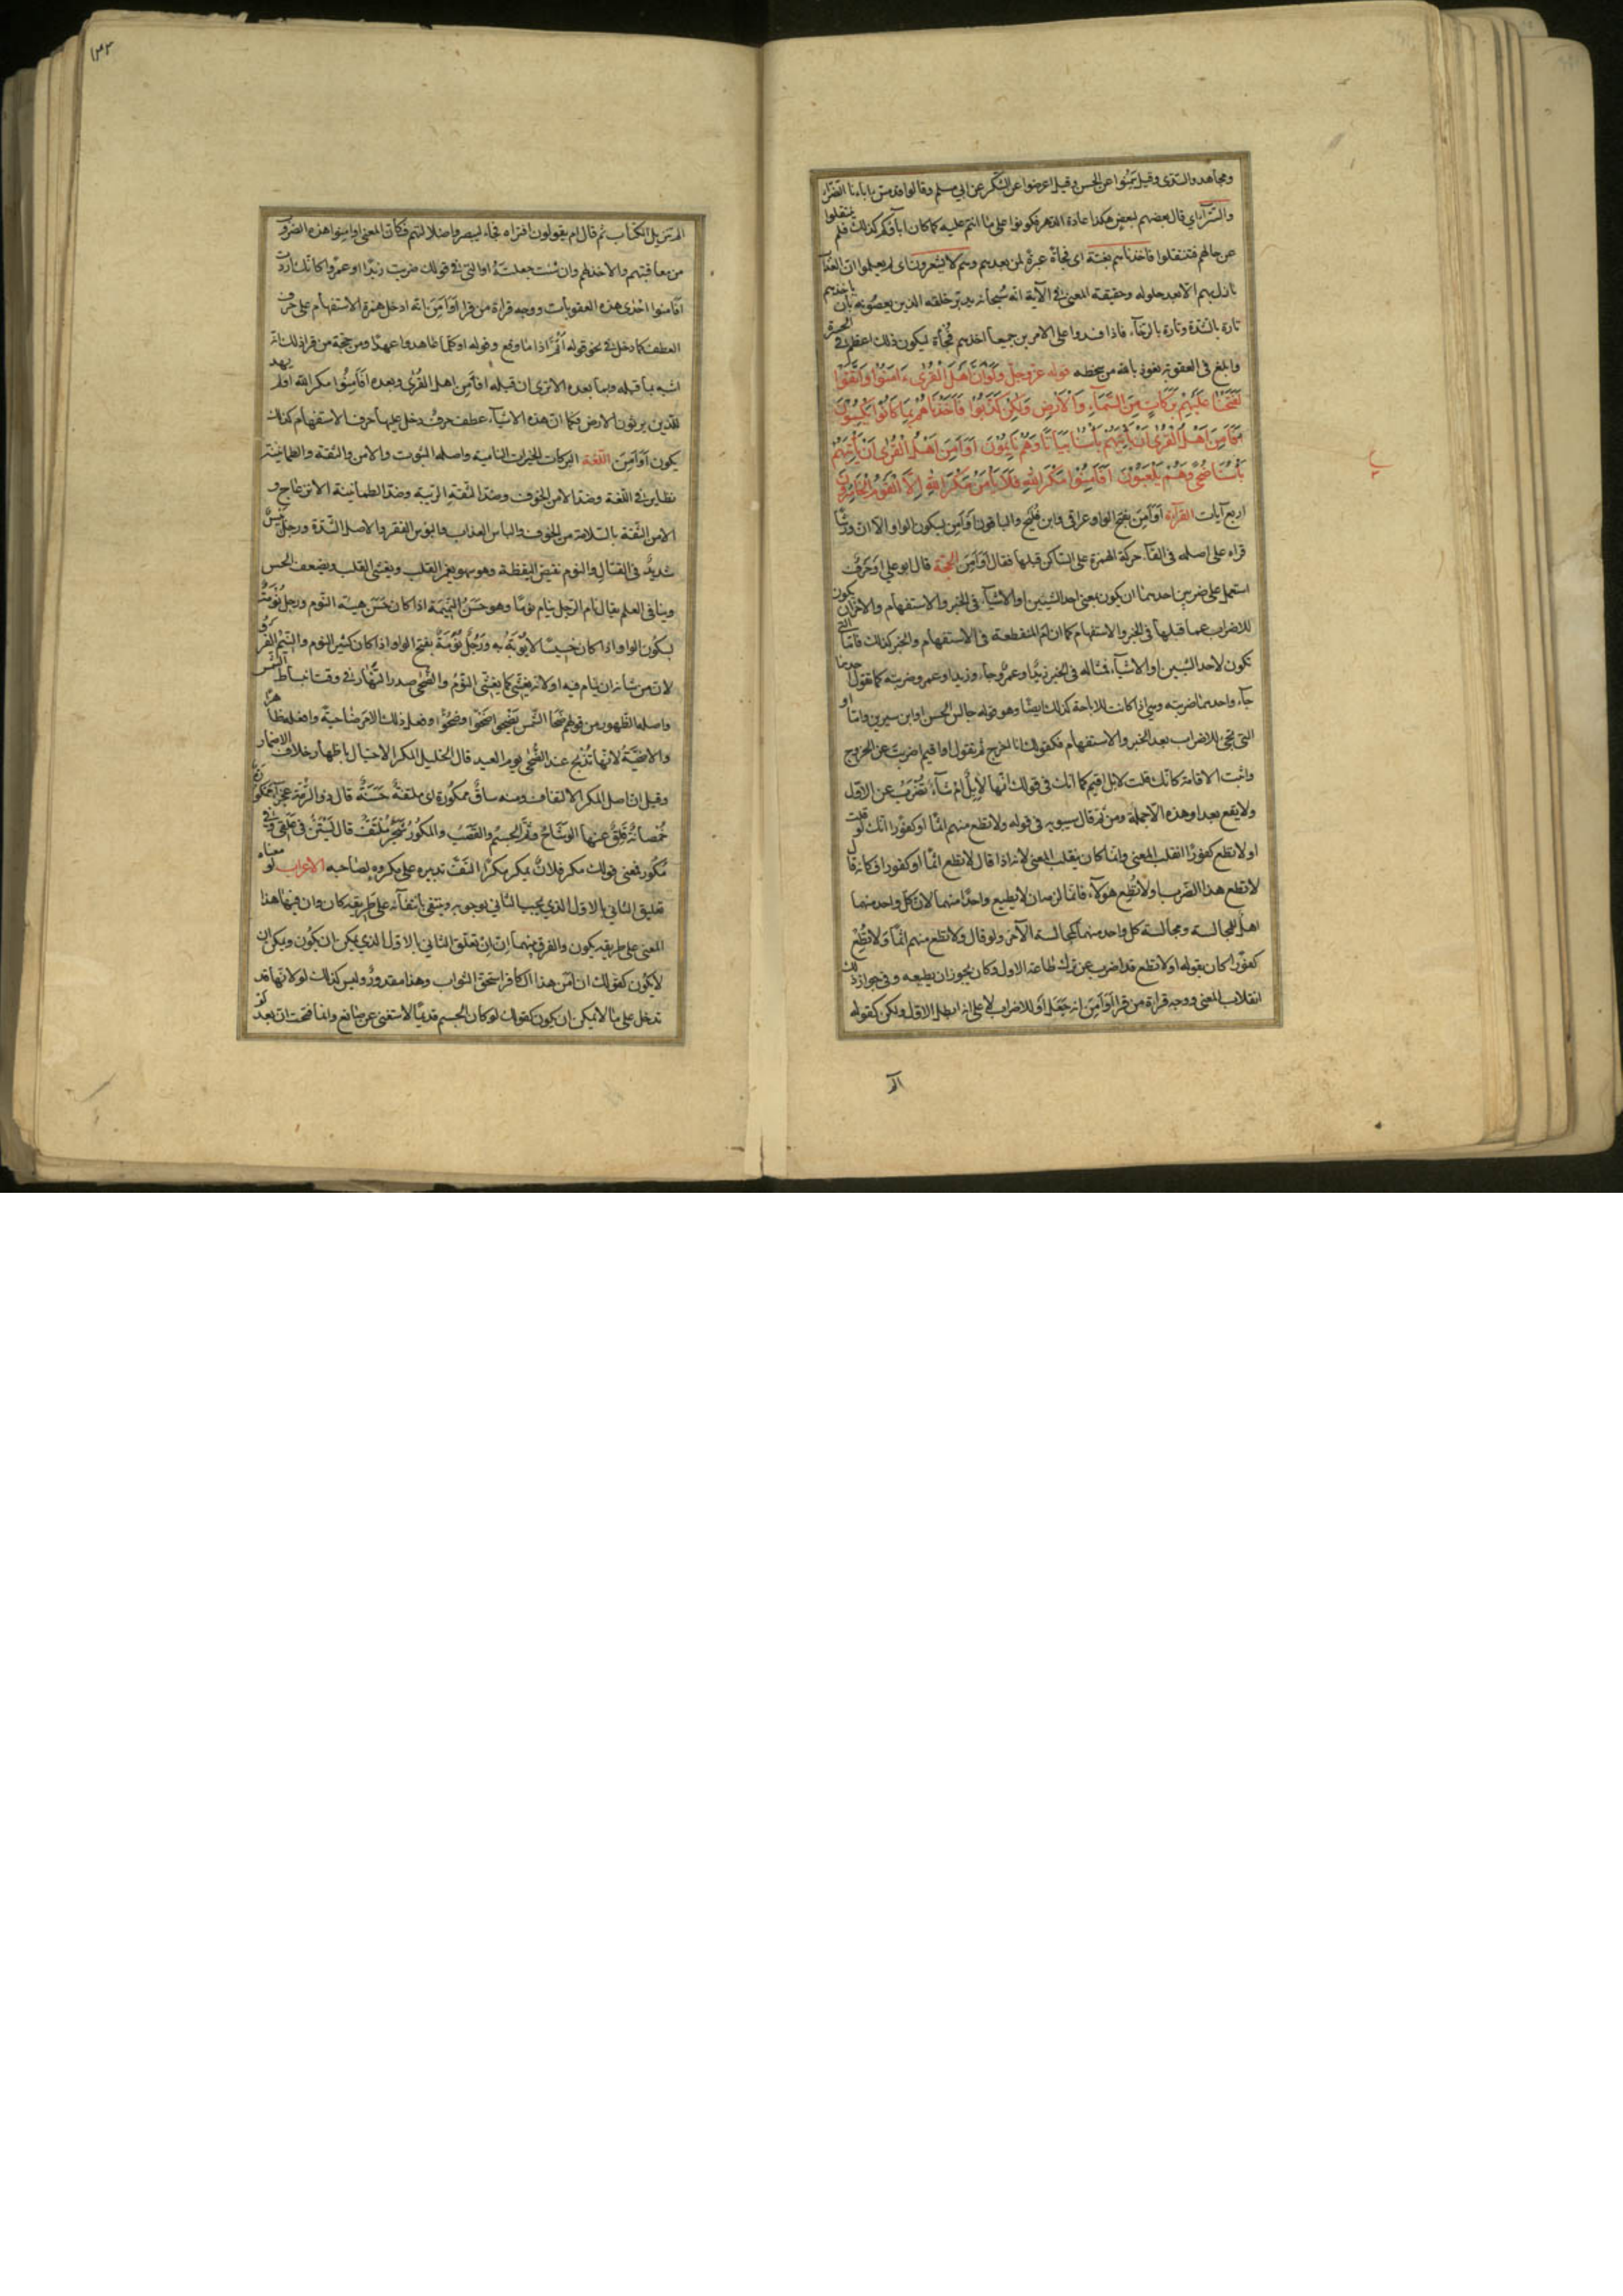 ومجاهد والسدّى وقيل سمنوا عن الحسن وقيل اعرضوا عن الشكر عن ابى مسلم وقالوا قد مسّ اباءنا الضرّاء
والسّرّاء اى قال بعضهم لبعض هكذا عادة الدهر فكونوا على ما انتم عليه كما كان اباؤكم كذلك فلم ينتقلوا
عن حالهم فتنتقلوا فاخذناهم بغتة اى فجأة عبرة لمن بعدهم وهم لا يشعرون اى لم يعلموا ان العذاب
نازل بهم الا بعد حلوله وحقيقة المعنى فى الآية انه سبحانه يدبّر خلقه الذين يعصونه بان ياخذهم
تارة بالشّدة وتارة بالرخاء فاذا فسدوا على الامرين جميعا اخذهم فجأة ليكون ذلك اعظم فى الحسرة
وابلغ فى العقوبة نعوذ بالله من سخطه قوله عزّ وجلّ وَلَوْ اَنَّ اَهْلَ الْقُرٰى ءَامَنُوْا وَاتَّقَوْا
لَفَتَحْنَا عَلَيْهِمْ بَرَكَاتٍ مِنَ السَّمَاءِ وَالْاَرْضِ وَلٰكِنْ كَذَّبُوْا فَاَخَذْنَاهُمْ بِمَا كَانُوْا يَكْسِبُوْنَ
اَفَاَمِنَ اَهْلُ الْقُرٰى اَنْ يَأْتِيَهُمْ بَأْسُنَا بَيَاتًا وَهُمْ نَائِمُوْنَ اَوَاَمِنَ اَهْلُ الْقُرٰى اَنْ يَأْتِيَهُمْ
بَأْسُنَا ضُحًى وَهُمْ يَلْعَبُوْنَ اَفَاَمِنُوْا مَكْرَ اللّٰهِ فَلَا يَاْمَنُ مَكْرَ اللّٰهِ اِلَّا الْقَوْمُ الْخَاسِرُوْنَ
اربع آيات القرآءة اَوَاَمِنَ بفتح الواو عراقى وابن فليح والباقون اَوْاَمِنَ بسكون الواو الا ان ورشا
قراه على اصله فى القاء حركة الهمزة على الساكن قبلها فقال اَوَامِنَ الحجّة قال ابو على اَوْ حَرفٌ
استعمل على ضربين احدهما ان يكون بمعنى احد الشيئين او الاشياء فى الخبر والاستفهام والاخر ان يكون
للاضراب عما قبلها فى الخبر والاستفهام كما ان ام المنقطعة فى الاستفهام والخبر كذلك فامّا التى
تكون لاحد الشيئين او الاشياء فمثاله فى الخبر زيد او عمرو جاء وزيدا او عمرو ضربته كما تقول احدهما
جاء واحدهما ضربته وهى اذا كانت للاباحة كذلك ايضا وهو قوله جالس الحسن او ابن سيرين وامّا او
التى تجئ للاضراب بعد الخبر والاستفهام فكقولك انا اخرج ثم تقول او اقيم اضربت عن الخروج
واثبت الاقامة كانك قلت لا بل اقيم كما انك فى قولك انها لابل ام شاء تضرب عن الاوّل
ولا يقع بعد او هذه الا جملة ومن ثم قال سيبويه فى قوله ولا تطع منهم اثما او كفورا انك لو قلت
او لا تطع كفورًا انقلب المعنى وانما كان ينقلب المعنى لانه اذا قال لا تطع اثما او كفورا فكانه قال
لا تطع هذا الضرب ولا تطع هولاء فانما لزمه ان لا يطيع واحدًا منهما لان كل واحد منهما
اهل للمجالسة ومجالسة كل واحد منهما كمجالسة الآخر ولو قال ولا تطع منهم اثما ولا تطع
كفورا كان بقوله او لا تطع قد اضرب عن ترك طاعة الاول وكان يجوز ان يطيعه وفى جواز ذلك
انقلاب المعنى ووجه قراءة من قرا اَوْاَمِنَ انه جعل او للاضراب لا على انه ابطل الاوّل ولكن كقوله
الم
١٣٢
الم تنزيل الكتاب ثم قال ام يقولون افتراه فجاء ليبصروا ضلالتهم فكان المعنى اوامنوا هذه الضروب
من معاقبتهم والاخذ لهم وان شئت جعلته او التى فى قولك ضربت زيدا او عمروا كانك اردت
اَفَاَمنوا احدى هذه العقوبات ووجه قراءة من قرا اَوَاَمِنَ انه ادخل همزة الاستفهام على حرف
العطف كما دخل فى نحو قوله اَثُمَّ اذا ما وقع وقوله اوكلما عاهدوا عهدًا ومن حجّة من قرا ذلك انه
اشبه بما قبله وبما بعده الا ترى ان قبله افاَمِنَ اهل القُرٰى وبعده اَفَاَمِنُوا مكر الله اولم يهد
للّذين يرثون الارض فكما ان هذه الاشياء عطف حرف دخل عليها حرف الاستفهام كذلك
يكون اَوَاَمِنَ اللغة البركات الخيرات النامية واصله الثبوت والامن والثقة والطمانينة
نظاير فى اللغة وضد الامن الخوف وضد الثقة الريبة وضد الطمانينة الانزعاج و
الامن الثقة بالسلامة من الخوف والباس العذاب والبؤس الفقر والاصل الشدة ورجل بَئِسٌ
شديدٌ فى القتال والنوم نقيض اليقظة وهو سهو يغمر القلب ويغشى القلب ويضعف الحس
وينافى العلم يقال نام الرجل ينام نومًا وهو حسن النيمة اذا كان حسن هيئة النوم ورجل نُوْمَةٌ
بسكون الواو اذا كان خسيسًا لا يُؤبَهُ به ورَجُلٌ نُوَمَةٌ بفتح الواو اذا كان كثير النوم والنيم الفرو
لان من شانه ان ينام فيه او لانه يغشى كما يغشى النومُ والضحى صدر النهار فى وقت انبساط الشمس
واصله الظهور من قولهم ضَحَا الشمس يَضْحى ضَحْوًا وضُحُوًّا وفعل ذلك الامر ضاحيةً وافعله ظاهرًا
والاضحيّةُ لانها تُذْبح عند الضُّحٰى يوم العيد قال الخليل المكر الاحتيال باظهار خلاف الاضمار
وقيل ان اصل المكر الالتفاف ومنه ساقٌ ممكُورَةٌ اى ملتفةٌ حَسَنَةٌ قال ذو الرّمّة عجزاء ممكورة
خُمصانَةٌ قَلِقٌ عنها الوشاحُ وتَمَّ الجِسمُ والقَصَبُ والممكُورُ شَجَرٌ مُلْتَفٌّ قال يَسْتَنُّ فى عَلْقى وفى
مُكُور فمعنى قولك مكر فلانٌ يمكر مكرًا التفّ تدبيره على مكروهٍ لصاحبه الاعراب لو معناه
تعليق الثانى بالاول الذى يجب الثانى بوجوبه وينتفى بانتفائه على طريقة كان وان فيها هذا
المعنى على طريقة يكون والفرق بينهما ان اِنْ تعلق الثانى بالاول الذى يمكن ان يكون ويمكن ان
لا يكون كقولك ان آمَن هذا الكافر استحق الثواب وهذا مقدورٌ وليس كذلك لو لانها قد
تدخل على ما لا يمكن ان يكون كقولك لو كان الجسم قديمًا لاستغنى عن صانع وانما فتحت ان بعد لو